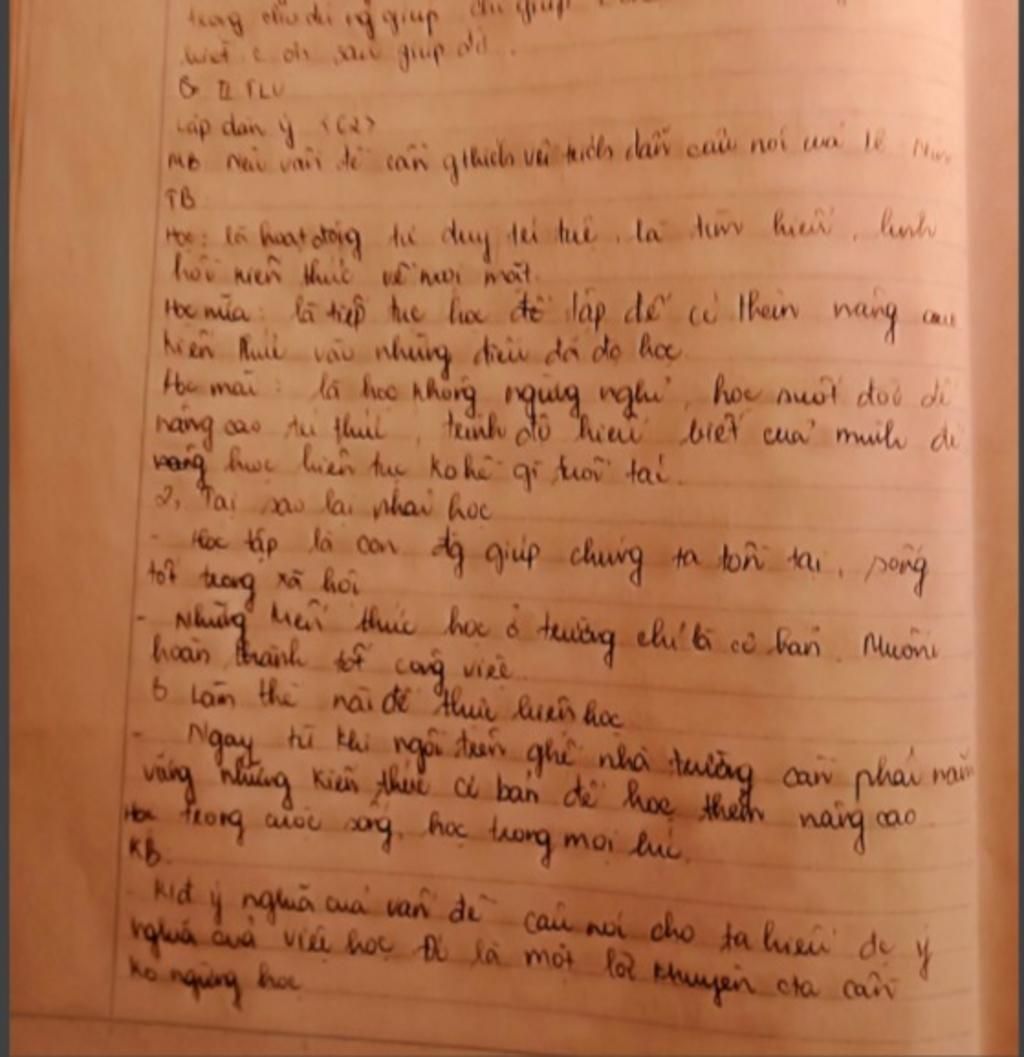 trong giúp giúp
biết c ơn sau giúp đỡ.
II TLV
Lập dàn ý <C2>
MB Nêu vấn đề cần gthích và trích dẫn câu nói của Lê
TB
Học: là hoạt động tư duy trí tuệ, là tìm hiểu, lĩnh
hội kiến thức về mọi mặt.
Học nữa: là tiếp tục học để lập để có thêm nâng cao
kiến thức vào những điều đã đc học
Học mãi: là học không ngừng nghỉ, học suốt đời để
nâng cao tri thức, trình độ hiểu biết của mình để
học liên tục ko kể gì tuổi tác.
2, Tại sao lại phải học
- Học tập là con đg giúp chúng ta tồn tại, sống
tốt trong xã hội
- Những kiến thức học ở trường chỉ là cơ bản. Muốn
hoàn thành tốt công việc.
Làm thế nào để thực hiện học
- Ngay từ khi ngồi trên ghế nhà trường cần phải nắm
vững những kiến thức cơ bản để học thêm nâng cao
Học trong cuộc sống, học trong mọi lúc.
KB.
Kđ ý nghĩa của vấn đề câu nói cho ta hiểu đc ý
nghĩa của việc học Đó là một lời khuyên cta cần
ko ngừng học